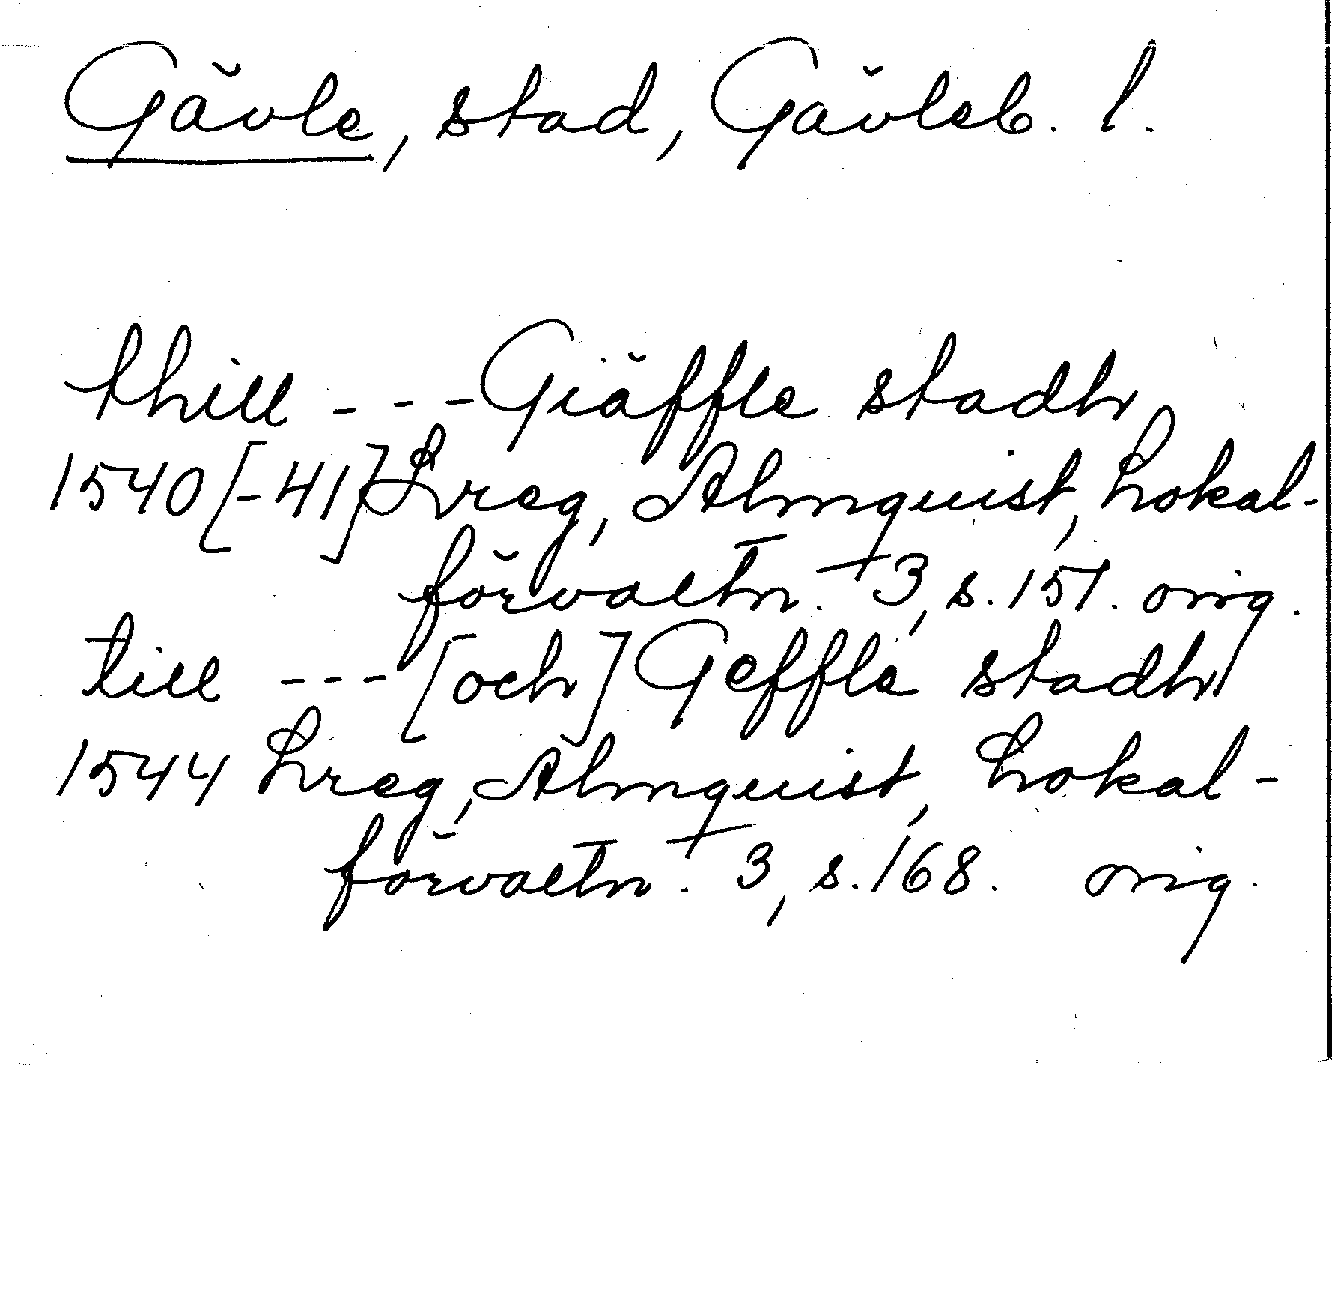 Gävle, stad, Gävleb. l.
thill - - - Giäffle stadh
1540 [-41] Lreg, Almquist, Lokal-
förvaltn. 3, s. 151. orig.
till - - - [och] Geffle stadh
1544 Lreg, Almquist, Lokal-
förvaltn. 3, s. 168. orig.